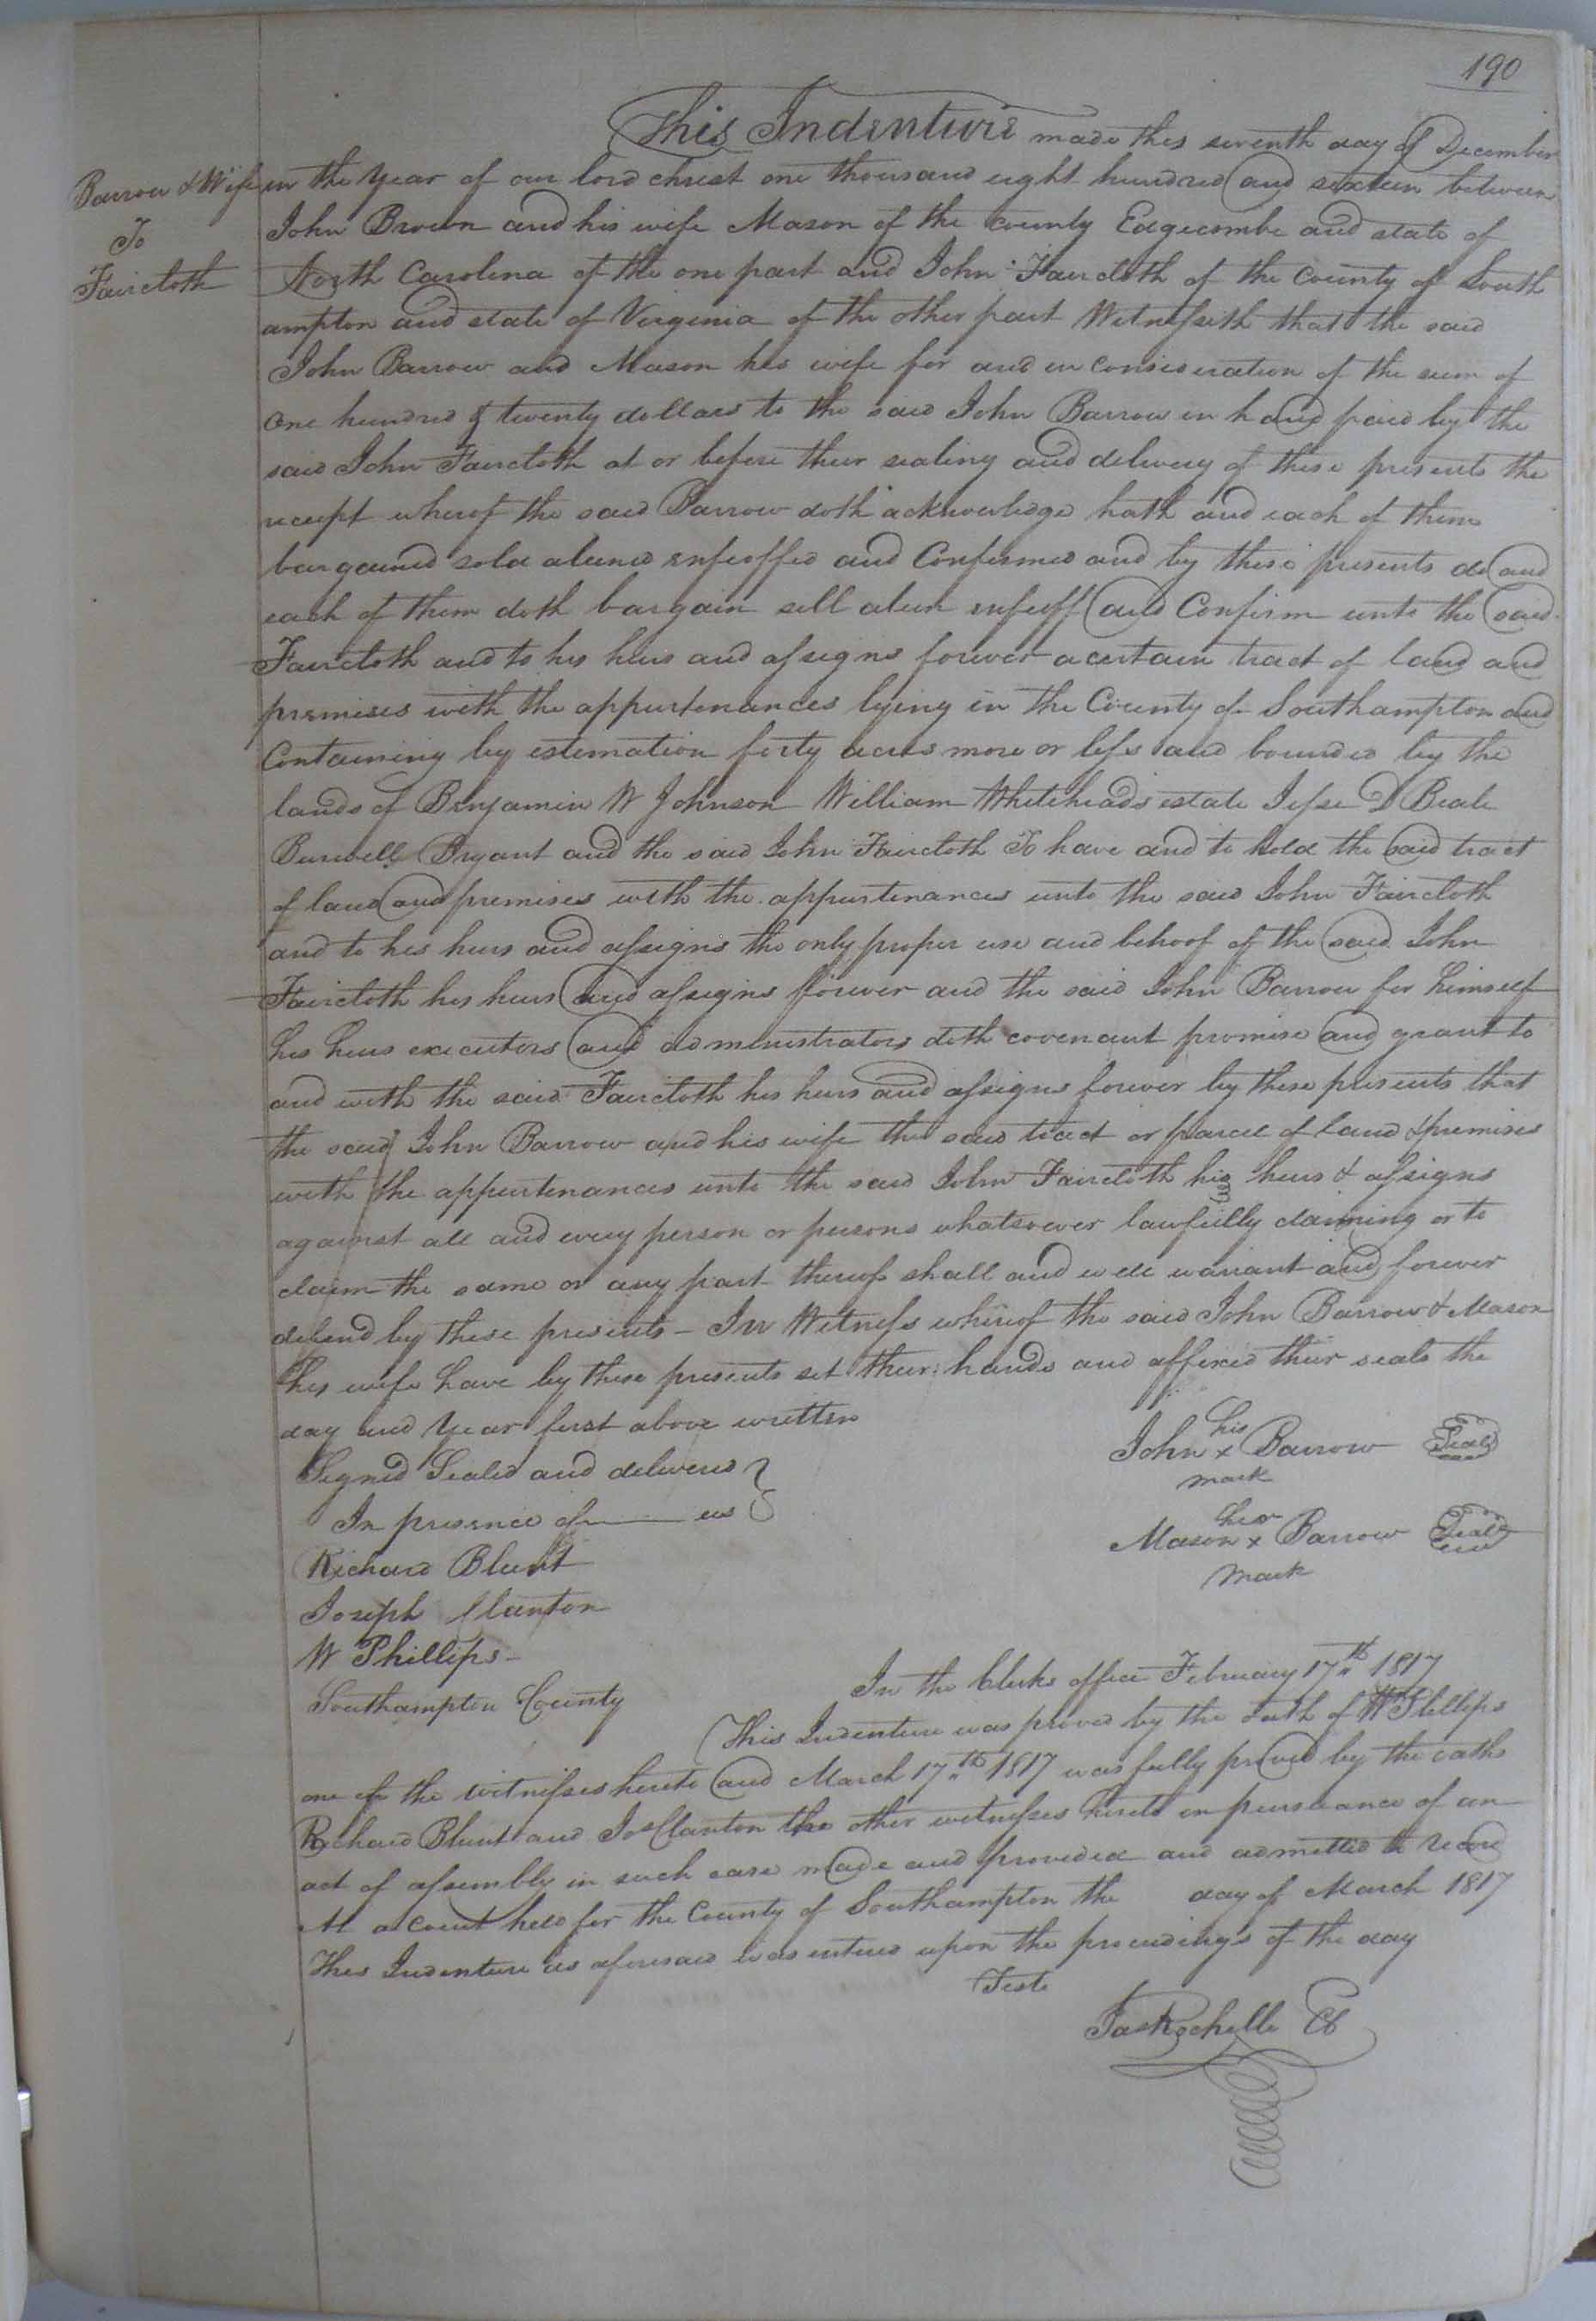 190
This Indenture made this seventh day of December
Barrow & Wife
To
Faircloth
in the Year of our lord christ one thousand eight hundred and sixteen between
John Brown and his wife Mason of the county Edgecombe and state of
North Carolina of the one part and John Faircloth of the county of South
ampton and state of Virginia of the other part Witnesseth that the said
John Barrow and Mason his wife for and in consideration of the sum of
one hundred & twenty dollars to the said John Barrow in hand paid by the
said John Faircloth at or before their sealing and delivery of these presents the
receipt wherof the said Barrow doth acknowledge hath and each of them
bargained sold aliened enfeoffed and Confirmed and by these presents do and
each of them doth bargain sell alien enfeoff and Confirm unto the said
Faircloth and to his heirs and assigns forever a certain tract of land and
premises with the appurtenances lying in the County of Southampton and
Containing by estemation forty acres more or less and bounded by the
lands of Benjamin W Johnson William Whiteheads estate Jesse D Beale
Burwell Bryant and the said John Faircloth To have and to hold the said tract
of land and premises with the appurtenances unto the said John Faircloth
and to his heirs and assigns the only proper use and behoof of the said John
Faircloth his heirs and assigns forever and the said John Barrow for himself
his heirs executors and administrators doth covenant promise and grant to
and with the said Faircloth his heirs and assigns forever by these presents that
the said John Barrow and his wife the said tract or parcel of land & premises
with the appurtenances unto the said John Faircloth his heirs & assigns
against all and every person or persons whatsoever lawfully claiming or to
claim the same or any part thereof shall and will warrant and forever
defend by these presents - In Witness whereof the said John Barrow & Mason
his wife have by these presents set their hands and affixed their seals the
day and Year first above written
Signed Sealed and delivered
In presence of us
Richard Blunt
Joseph Clanton
W Phillips
his
John x Barrow Seal
mark
her
Mason x Barrow Seal
mark
Southampton County
In the Clerks office February 17th 1817
This Indenture was proved by the Oath of W Phillips
one of the witnesses hereto and March 17th 1817 was fully proved by the oaths
Richard Blunt and Jos Clanton the other witnesses hereto in pursuance of an
act of assembly in such case made and provided and admitted to record
At a court held for the County of Southampton the day of March 1817
This Indenture as aforesaid was entered upon the proceedings of the day
Teste
Jas Rochelle CC